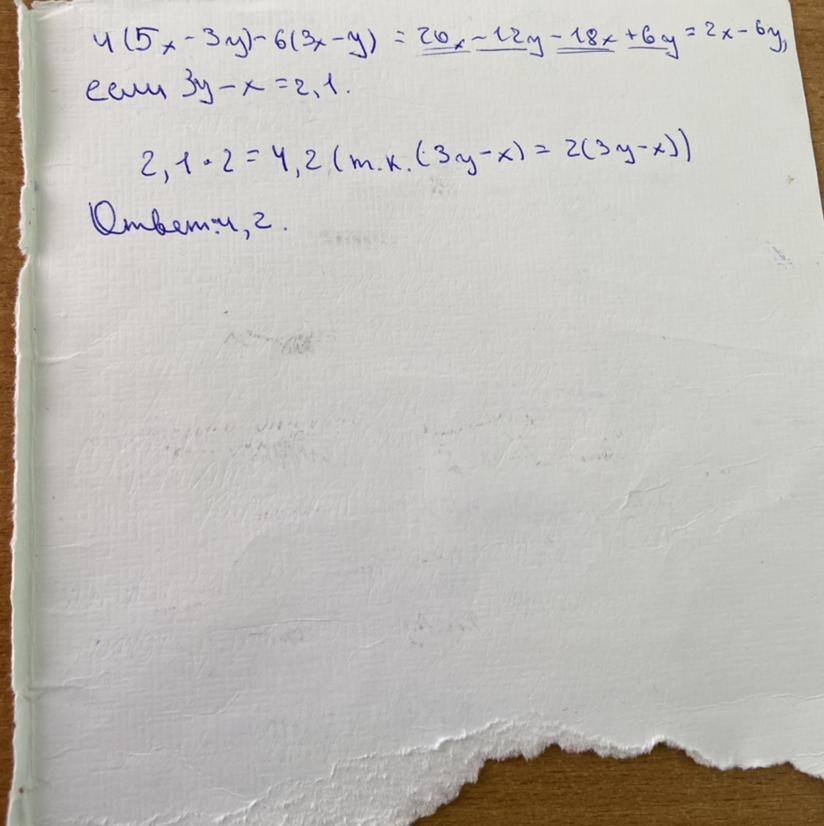 4(5x-3y)-6(3x-y) = 20x-12y-18x+6y=2x-6y,
если 3y-x=2,1.
2,1·2=4,2(т.к.(3y-x)=2(3y-x))
Ответ:4,2.